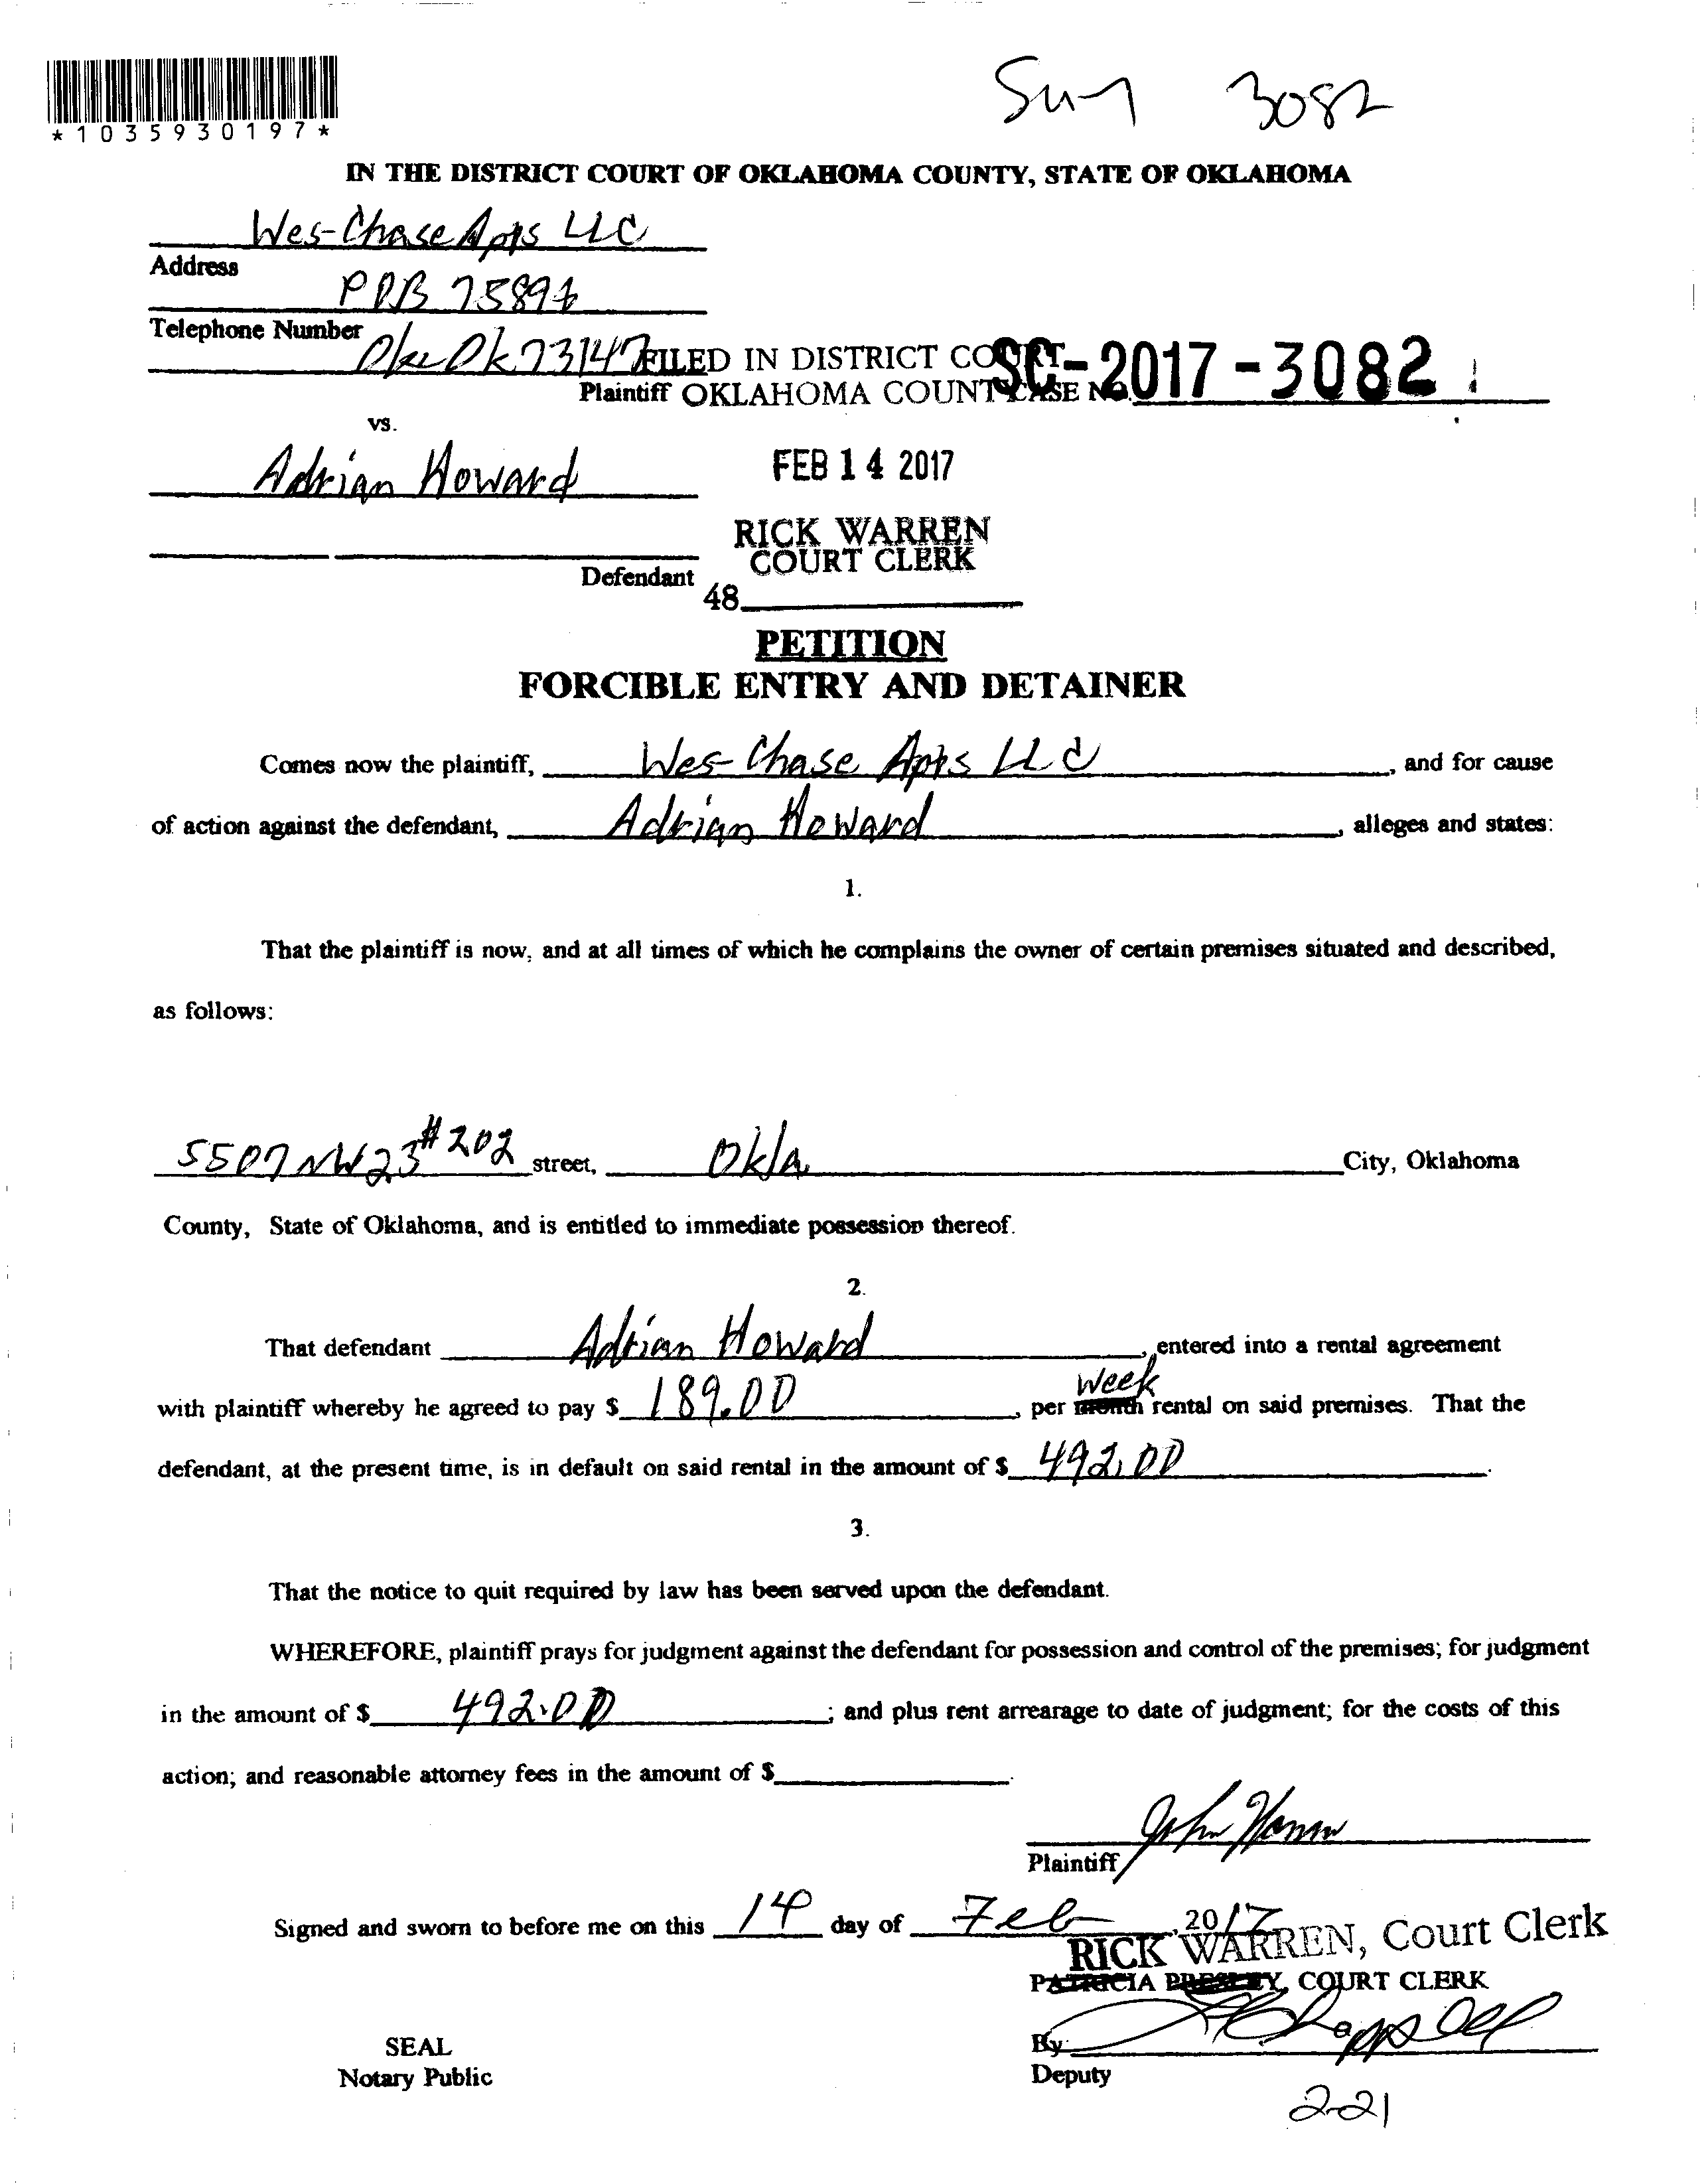 *1035930197*
3082
IN THE DISTRICT COURT OF OKLAHOMA COUNTY, STATE OF OKLAHOMA
Wes-Chase Apts LLC
Address
POB 75894
Telephone Number
Okc Ok 73147
FILED IN DISTRICT COURT
OKLAHOMA COUNTY
Plaintiff
CASE No. SC-2017-3082
vs.
Adrian Howard
FEB 14 2017
RICK WARREN
COURT CLERK
Defendant
48
PETITION
FORCIBLE ENTRY AND DETAINER
Comes now the plaintiff, Wes-Chase Apts LLC, and for cause
of action against the defendant, Adrian Howard, alleges and states:
1.
That the plaintiff is now, and at all times of which he complains the owner of certain premises situated and described,
as follows:
5507 NW 23 #202 street, Okla City, Oklahoma
County, State of Oklahoma, and is entitled to immediate possession thereof.
2.
That defendant Adrian Howard, entered into a rental agreement
week
with plaintiff whereby he agreed to pay $ 189.00, per month rental on said premises. That the
defendant, at the present time, is in default on said rental in the amount of $ 492.00.
3.
That the notice to quit required by law has been served upon the defendant.
WHEREFORE, plaintiff prays for judgment against the defendant for possession and control of the premises; for judgment
in the amount of $ 492.00; and plus rent arrearage to date of judgment; for the costs of this
action; and reasonable attorney fees in the amount of $.
John
Plaintiff
Signed and sworn to before me on this 14 day of Feb, 2017
RICK WARREN, Court Clerk
PATRICIA PRESLEY, COURT CLERK
SEAL
By:
Notary Public
Deputy
2-21